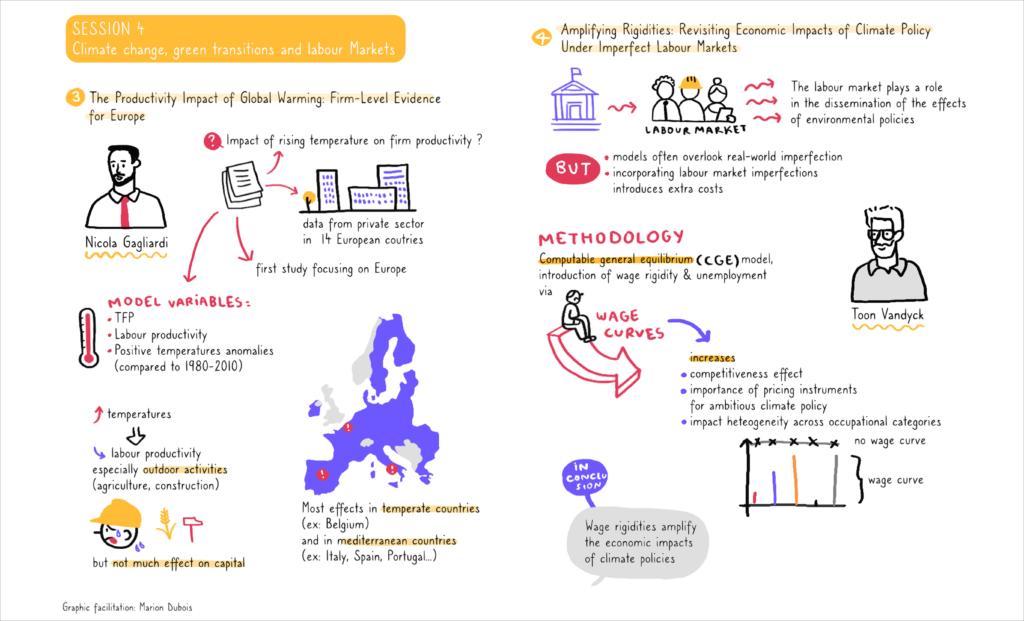 SESSION 4
Climate change, green transitions and labour Markets
3 The Productivity Impact of Global Warming: Firm-Level Evidence
for Europe
? Impact of rising temperature on firm productivity ?
Nicola Gagliardi
data from private sector
in 14 European coutries
first study focusing on Europe
MODEL VARIABLES:
• TFP
• Labour productivity
• Positive temperatures anomalies
(compared to 1980-2010)
temperatures
labour productivity
especially outdoor activities
(agriculture, construction)
but not much effect on capital
!
!
!
Most effects in temperate countries
(ex: Belgium)
and in mediterranean countries
(ex: Italy, Spain, Portugal...)
4 Amplifying Rigidities: Revisiting Economic Impacts of Climate Policy
Under Imperfect Labour Markets
LABOUR MARKET
The labour market plays a role
in the dissemination of the effects
of environmental policies
BUT
• models often overlook real-world imperfection
• incorporating labour market imperfections
introduces extra costs
METHODOLOGY
Computable general equilibrium (CGE) model,
introduction of wage rigidity & unemployment
via
WAGE
CURVES
Toon Vandyck
increases
• competitiveness effect
• importance of pricing instruments
for ambitious climate policy
• impact heteogeneity across occupational categories
no wage curve
wage curve
IN
CONCLU
SION
Wage rigidities amplify
the economic impacts
of climate policies
Graphic facilitation: Marion Dubois